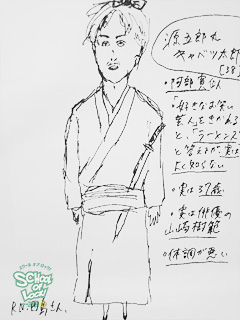 源五郎丸
キャベツ太郎
(38)
・阿部寛似
・「好きなお笑い
芸人」をきかれる
と、「ラーメンズ」
と答えるが、実は
よく知らない
・実は37歳
・実は俳優の
山崎樹範
・体調が悪い
SCHOOL
OF
LOCK!